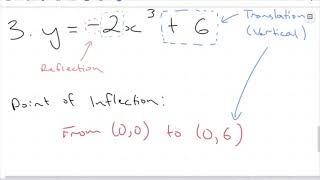 3. y = -2x³ + 6
Translation
(Vertical)
Reflection
Point of Inflection:
From (0,0) to (0,6)